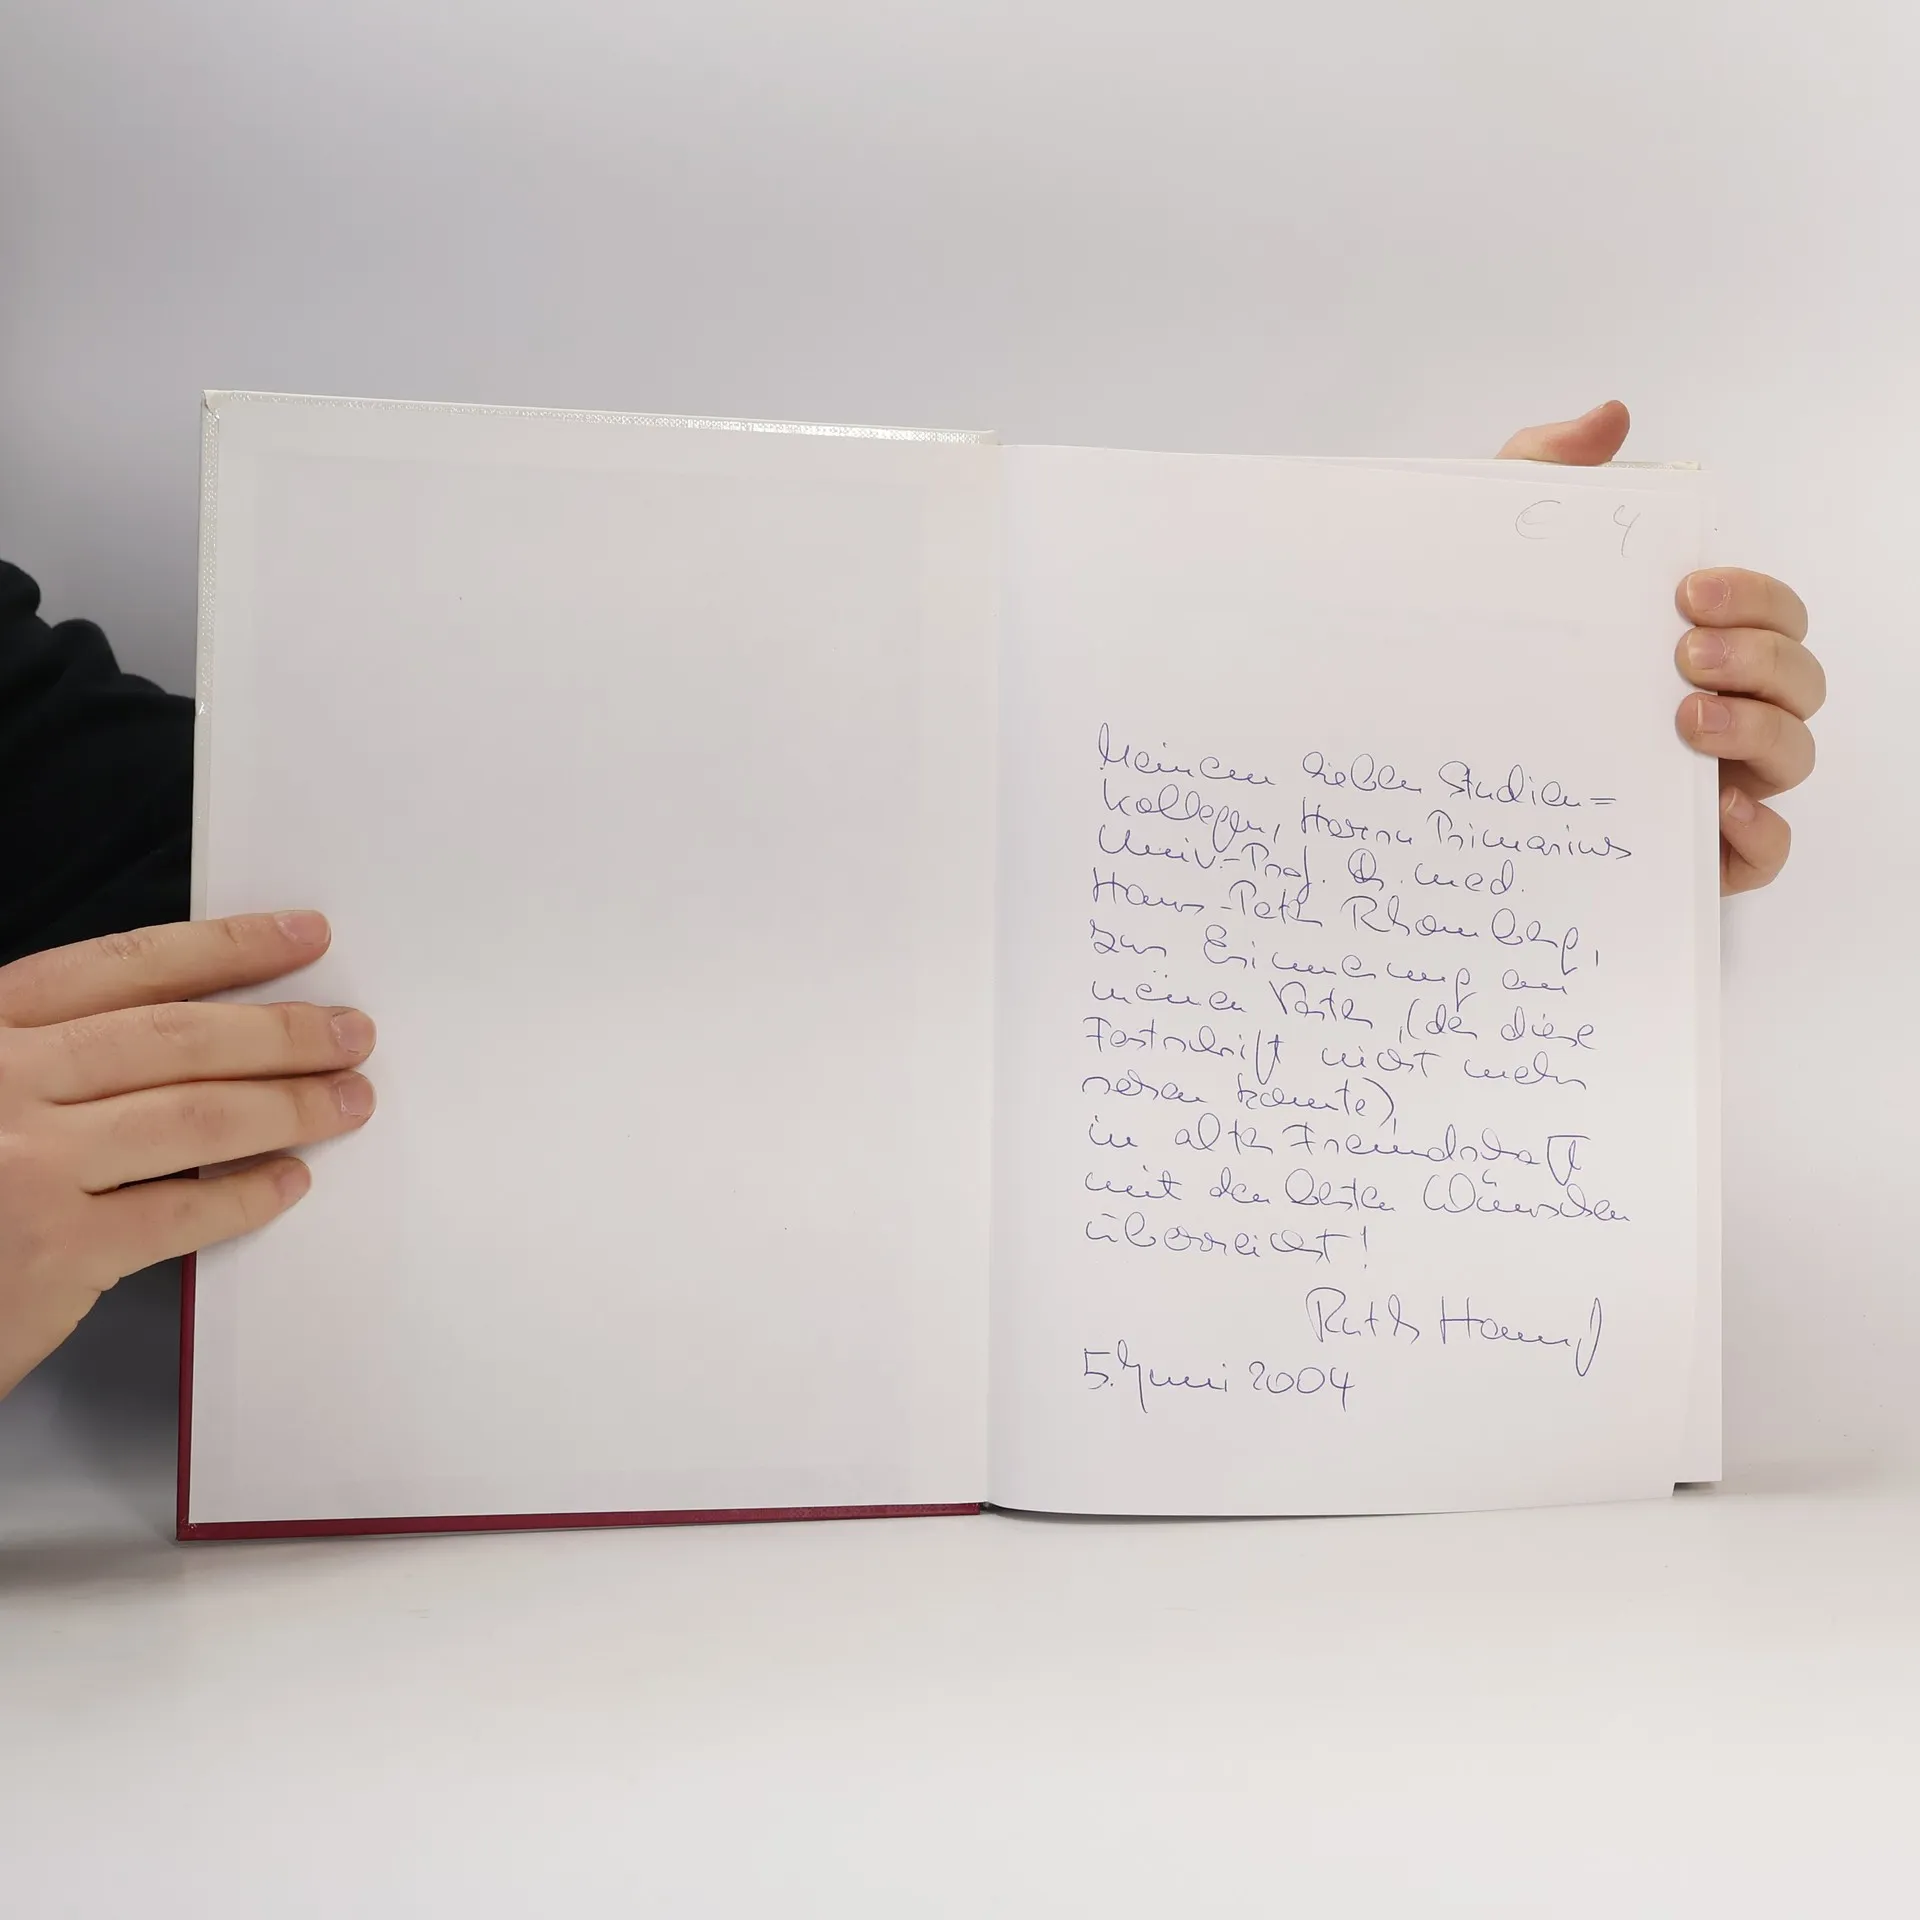 € 4
Meinem lieben Studien=
kollegen, Herrn Primarius
Univ.-Prof. Dr. med.
Hans-Peter Rhomberg,
zur Erinnerung an
meinen Vater, (der diese
Festschrift nicht mehr
sehen konnte),
in alter Freundschaft
mit den besten Wünschen
überreicht!
Ruth
5. Juni 2004